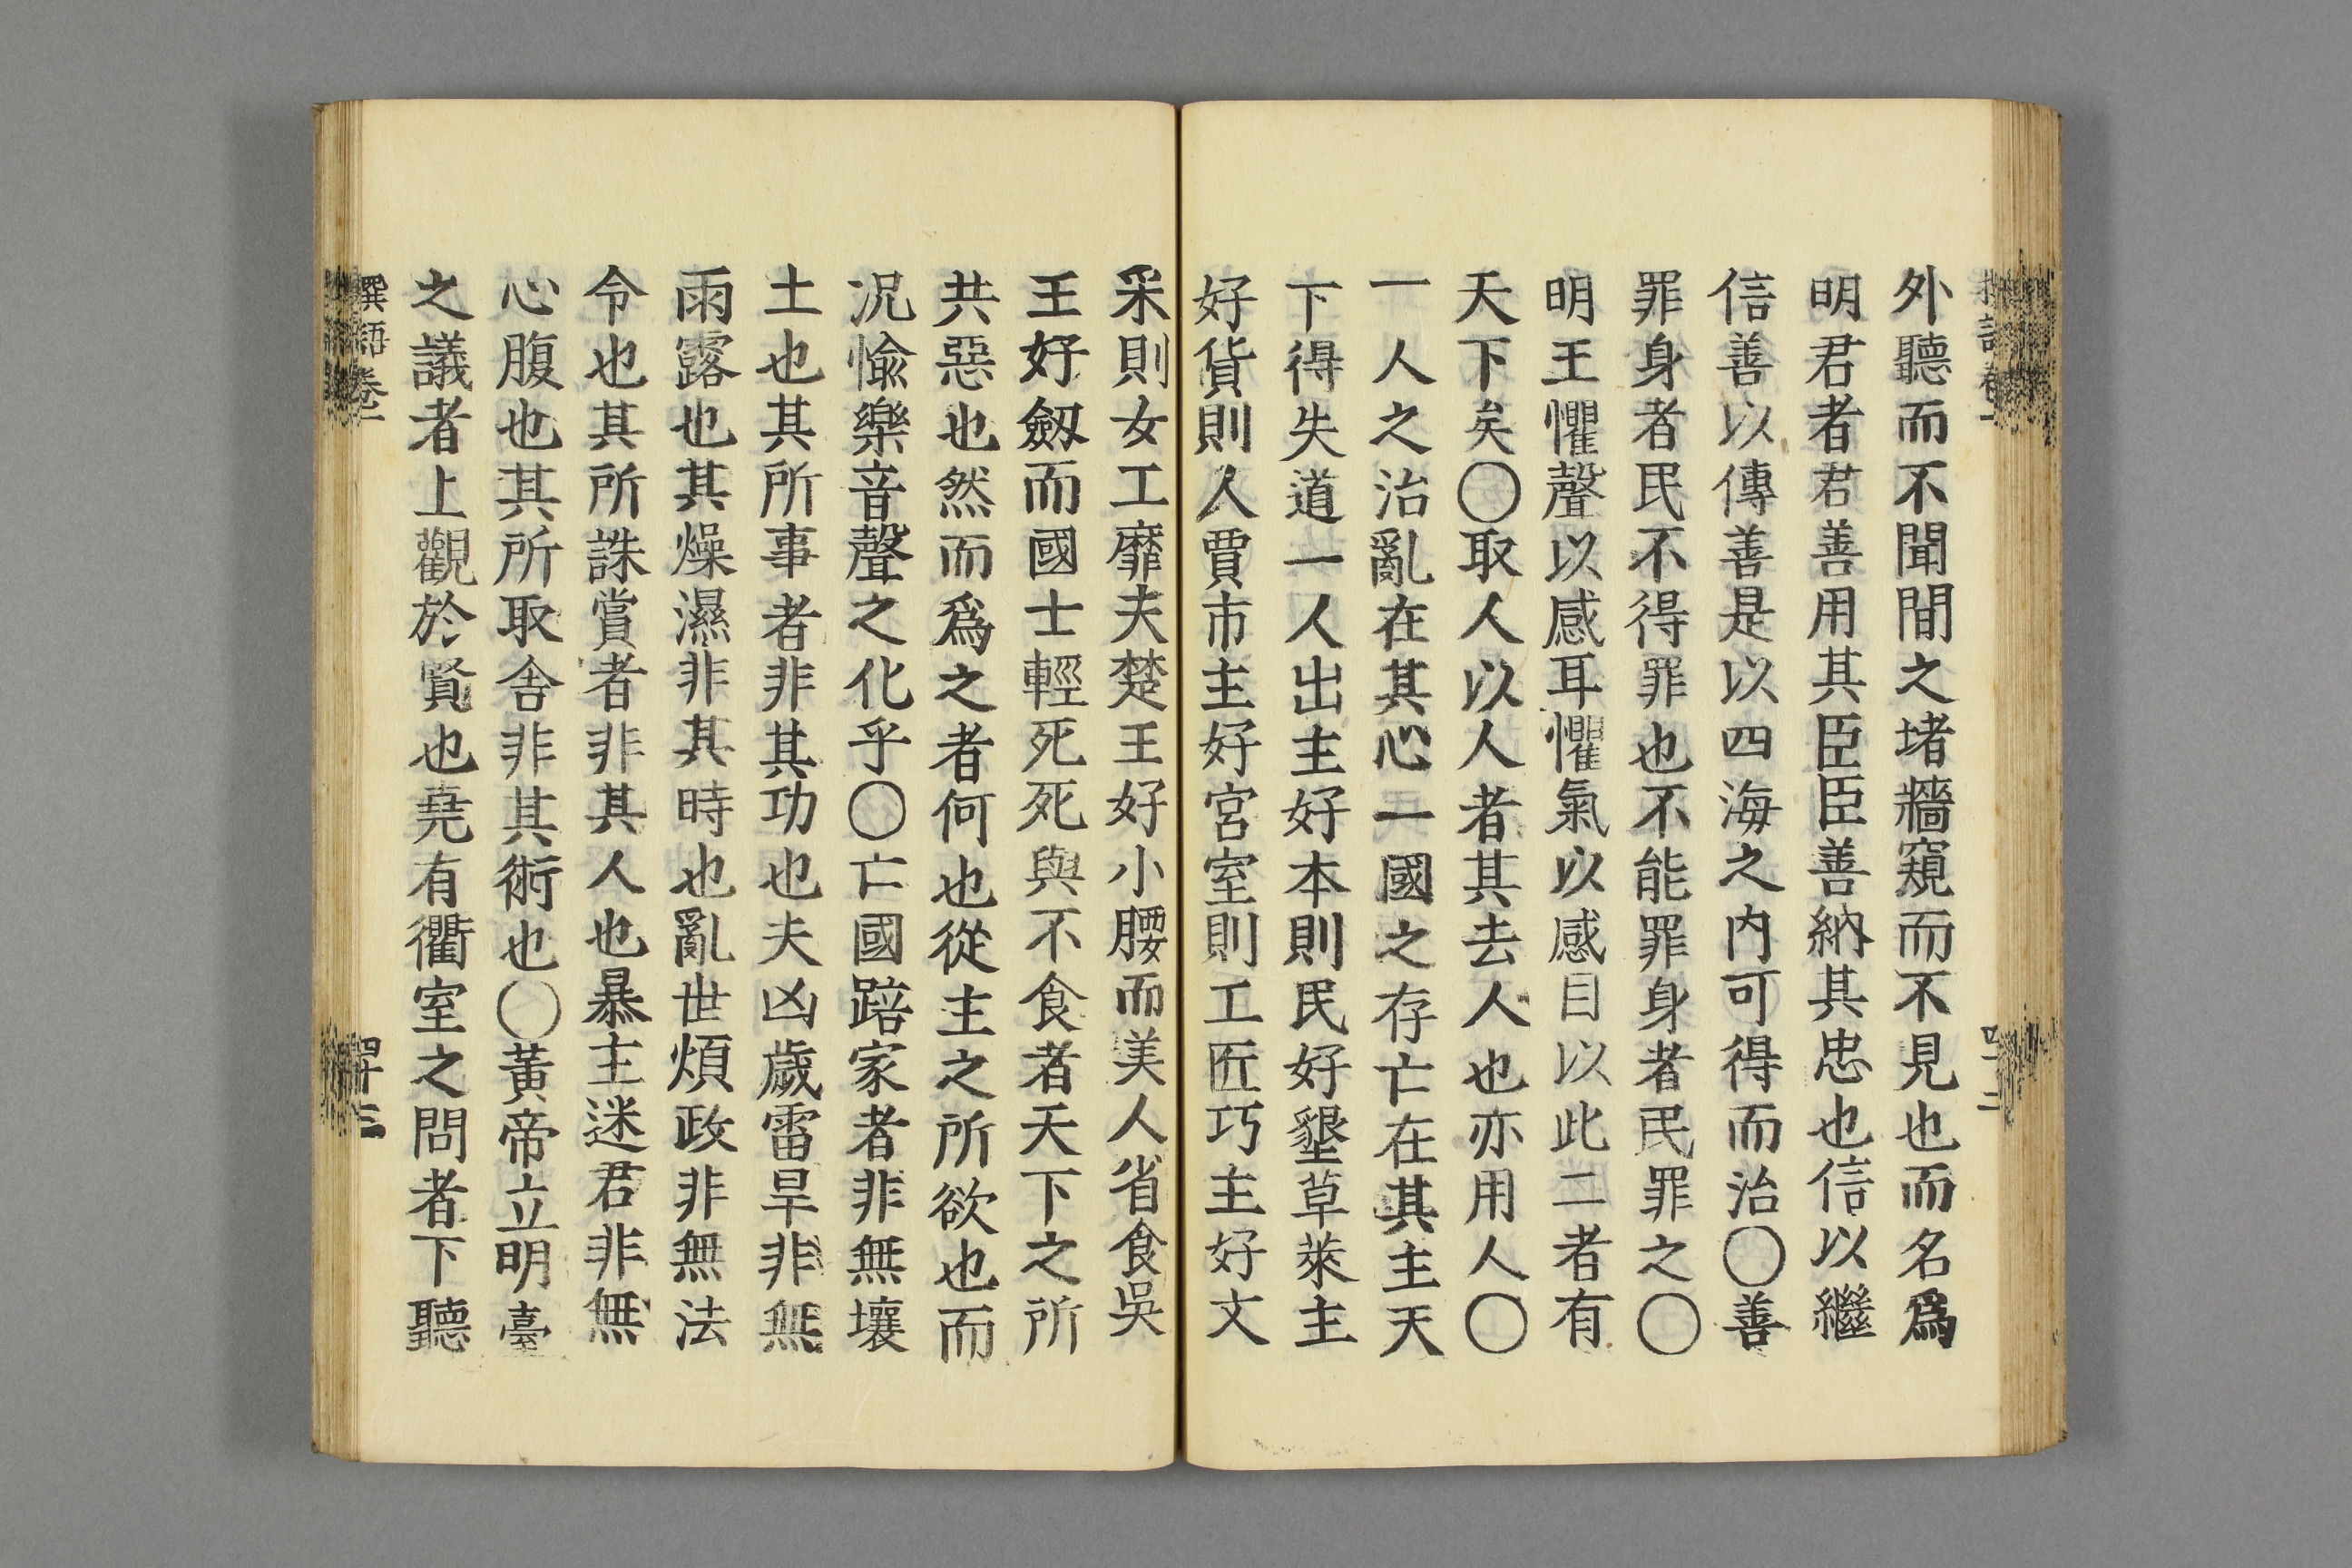 外聽而不聞間之堵牆窺而不見也而名爲
明君者君善用其臣臣善納其忠也信以繼
信善以傳善是以四海之内可得而治〇善
罪身者民不得罪也不能罪身者民罪之〇
明王懼聲以感耳懼氣以感目以此二者有
天下矣〇取人以人者其去人也亦用人〇
一人之治亂在其心一國之存亡在其主天
下得失道一人出主好本則民好墾草萊主
好貨則人賈市主好宮室則工匠巧主好文
采則女工靡夫楚王好小腰而美人省食吳
王好劒而國士輕死死與不食者天下之所
共惡也然而爲之者何也從主之所欲也而
况愉樂音聲之化乎〇亡國踣家者非無壤
土也其所事者非其功也夫凶歲雷旱非無
雨露也其燥濕非其時也亂世煩政非無法
令也其所誅賞者非其人也暴主迷君非無
心腹也其所取舍非其術也〇黃帝立明臺
之議者上觀於賢也堯有衢室之問者下聽
撰語卷二
四十三